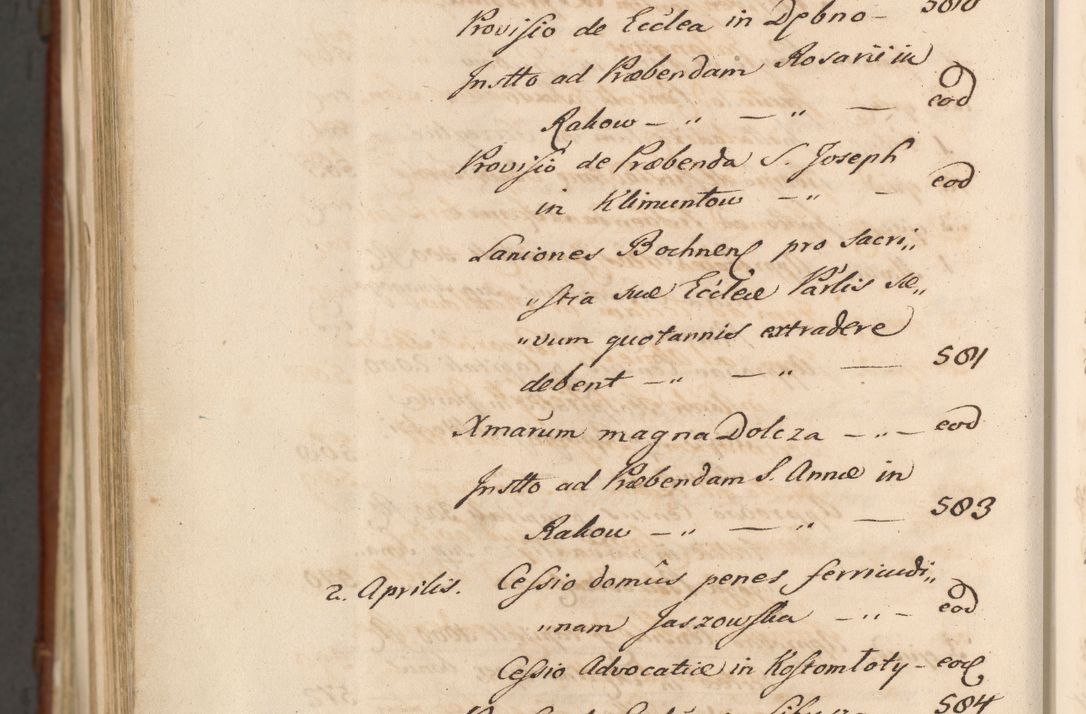 Provisio de Ecclea in Dębno –
Instto ad Præbendam Rosarii in
Rakow – „ – „ – eod
Provisio de Præbenda S. Joseph
in Klimuntow – „ – eod
Laniones Bochnen pro sacri„
„stia suæ Eccleæ Parlis se„
„vum quotannis extradere
debent – „ – „ – 581
Xmarum magna Dolcza – „ – eod
Instto ad Præbendam S. Annæ in
Rakow – „ – „ – 583
2. Aprilis. Cessio domûs penes ferricudi„
„nam Jaszowska – „ – eod
Cessio Advocatiæ in Kostomłoty – eod
584